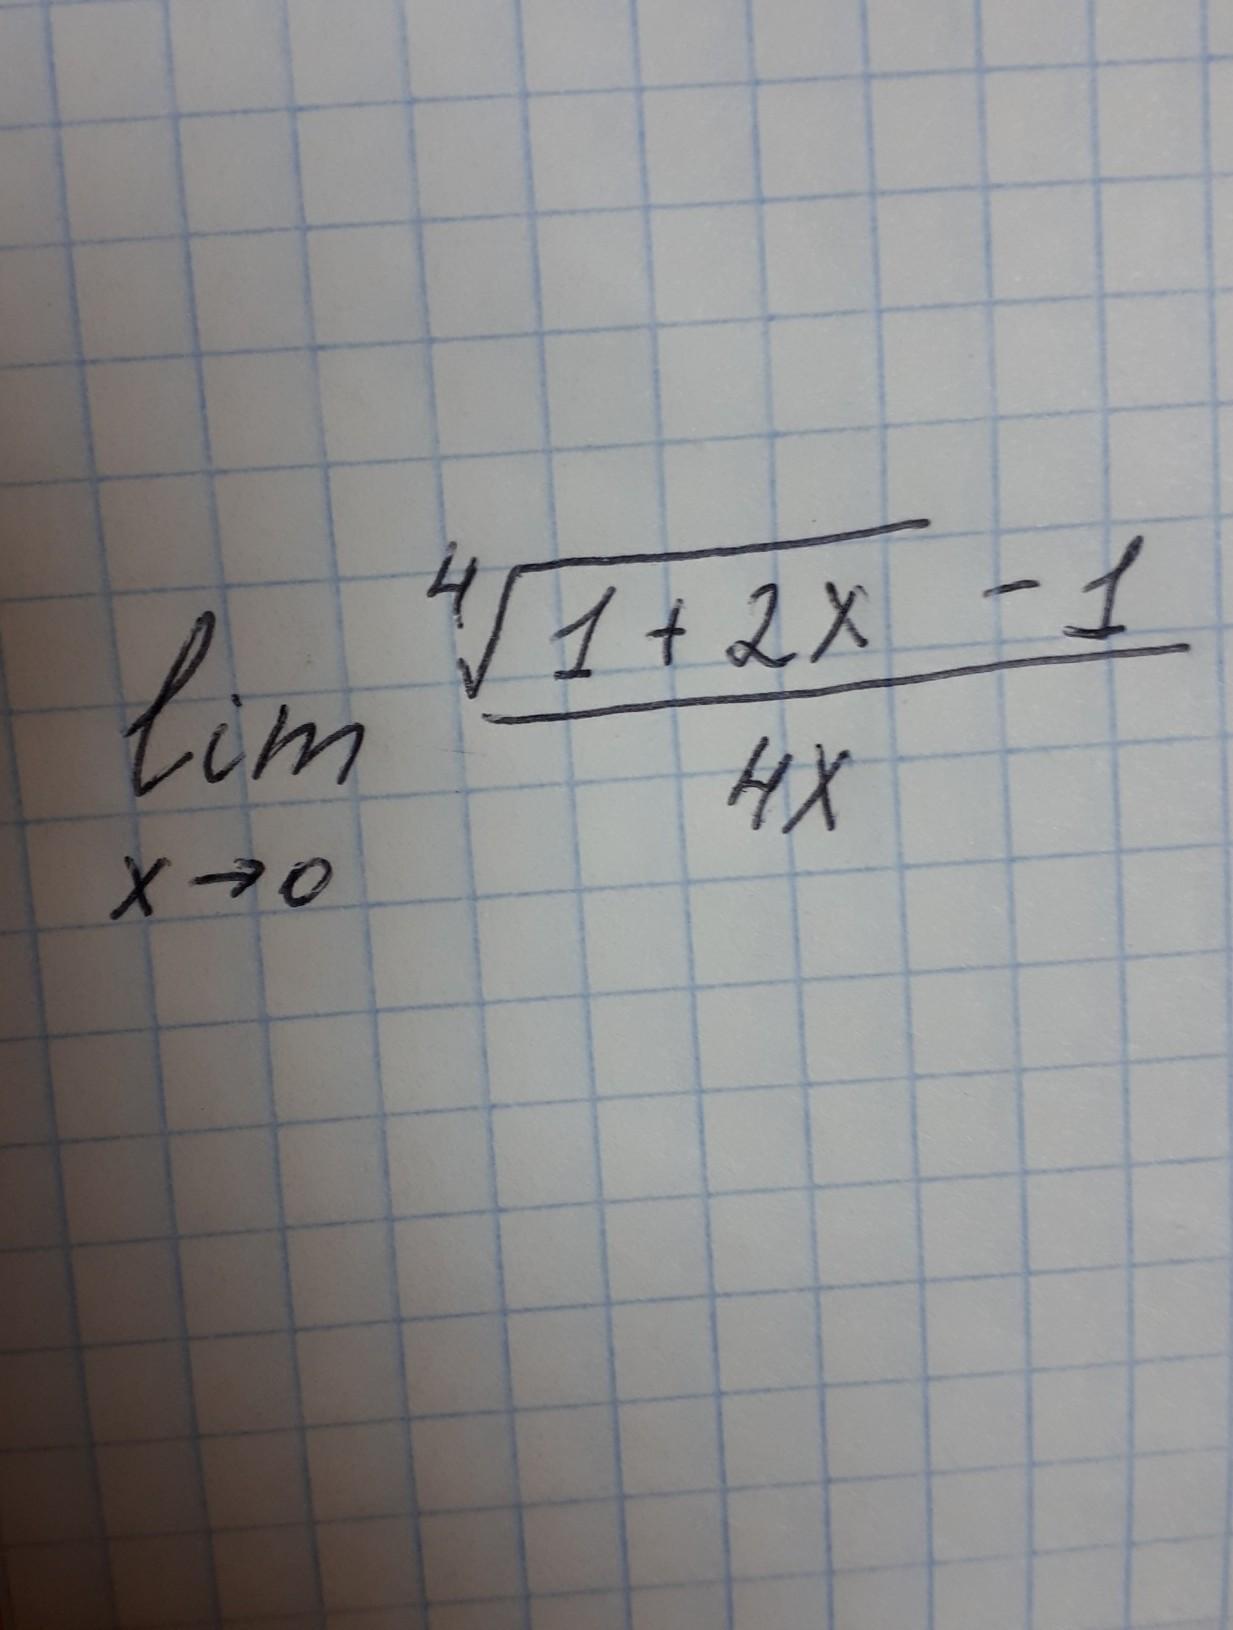 lim x→0 (∜(1+2x) - 1) / 4x